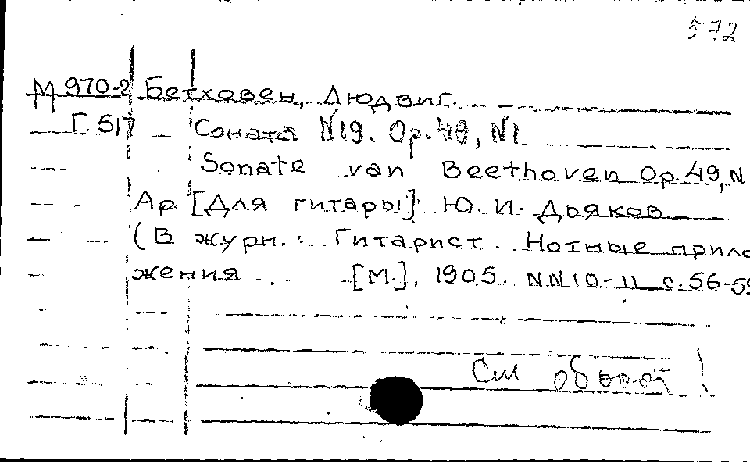 572
М 970-2 Бетховен, Людвиг.
Г 517 Соната N19. Op. 49, N1
Sonate van Beethoven Op. 49, N
Ар. [Для гитары] Ю. И. Дьяков
(В журн.: Гитарист. Нотные прило
жения [М.], 1905. NN10-11 с. 56-59
См оборот!